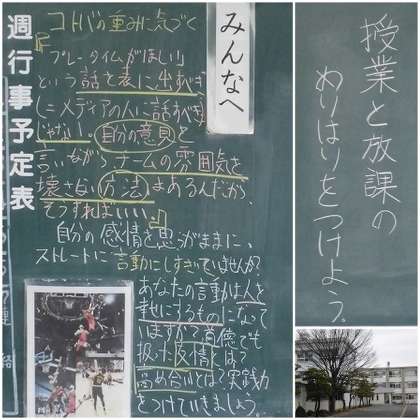 みんなへ
週行事予定表
コトバの重みに気づく
『プレータイムがほしい』
という話を表に出すべき
(=メディアの人に話すべき)
じゃない。自分の意見を
言いながらチームの雰囲気を
壊さない方法もあるんだから
そうすればいい。』
自分の感情を思うがままに、
ストレートに言動にしすぎていませんか?
あなたの言動は人を
幸せにするものになって
いますか?道徳でも
扱った友情とは?
高め合いとは?実践力
をつけていきましょう
授業と放課の
めりはりをつけよう。